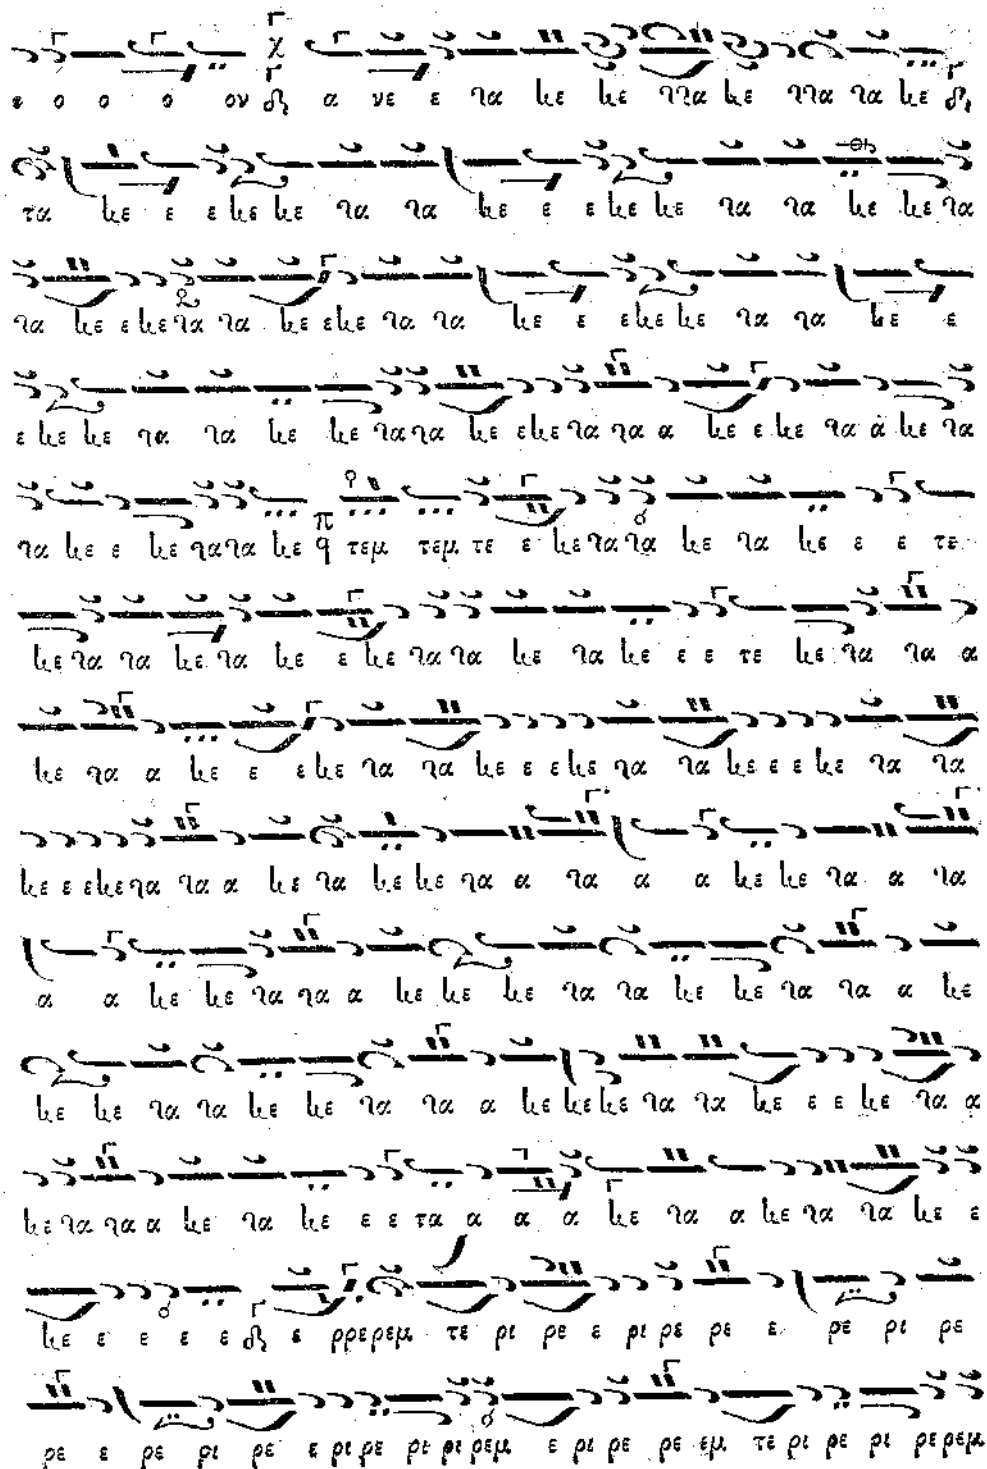 ε ο ο ο ον α νε ε γα κε κε γγα κε γγα γα κε
τα κε ε ε κε κε γα γα κε ε ε κε κε γα γα κε κε γα
γα κε ε κε γα γα κε ε κε γα γα κε ε ε κε κε γα γα κε ε
ε κε κε γα γα κε κε γα γα κε ε κε γα γα α κε ε κε γα α κε γα
γα κε ε κε γα γα κε π q τεμ τεμ τε ε κε γα γα κε γα κε ε ε τε
κε γα γα κε γα κε ε κε γα γα κε γα κε ε ε τε κε γα γα α
κε γα α κε ε ε κε γα γα κε ε ε κε γα γα κε ε ε κε γα γα
κε ε ε κε γα γα α κε γα κε κε γα α γα α α κε κε γα α γα
α α κε κε γα γα α κε κε κε γα γα κε κε γα γα α κε
κε κε γα γα κε κε γα γα α κε κε κε γα γα κε ε ε κε γα α
κε γα γα α κε γα κε ε ε τα α α α κε γα α κε γα γα κε ε
κε ε ε ε ε ε ρρερεμ τε ρι ρε ε ρι ρε ρε ε ρε ρι ρε
ρε ε ρε ρι ρε ε ρι ρε ρι ρι ρεμ ε ρι ρε ρε εμ τε ρι ρε ρι ρε ρεμ